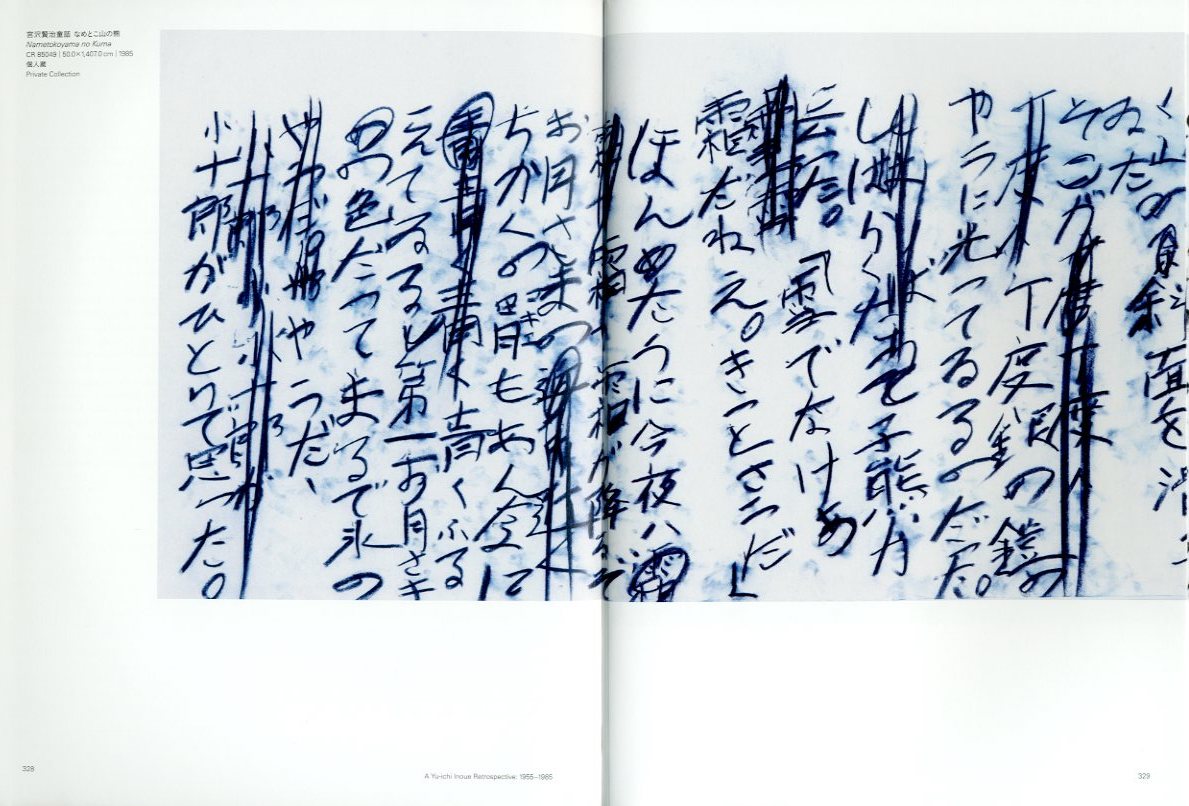 宮沢賢治童話 なめとこ山の熊
Nametokoyama no Kuma
CR 85049 | 50.0×1,407.0cm | 1985
個人蔵
Private Collection
斜面を
ゐた。
そこが
丁度銀の鎧の
やうに光ってゐるのだった。
しばらくたって子熊が
云った。「雪でなけあ
霜だねえ。きっとさうだ」
ほんたうに今夜ハ霜
が降るぞ
お月さまの
ちかくの胃もあんなに
青く青くふる
えてゐるし第一お月さま
の色だってまるで氷の
やうだ、
小十郎が
小十郎がひとりで思った。
328
A Yu-ichi Inoue Retrospective: 1955–1985
329